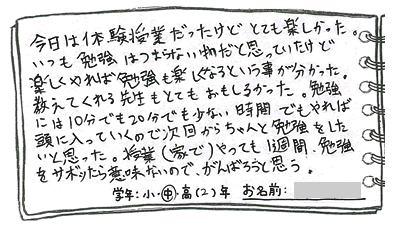 今日は体験授業だったけど とても楽しかった。
いつも 勉強 はつまらない物だと思っていたけど
楽しくやれば勉強も楽しくなるという事が分かった。
教えてくれる先生もとてもおもしろかった。勉強
には10分でも20分でも少ない時間 でもやれば
頭に入っていくので次回からちゃんと勉強をした
いと思った。授業(家で)やっても1週間、勉強
をサボったら意味ないので、がんばろうと思う。
学年:小・中・高(2)年 お名前: